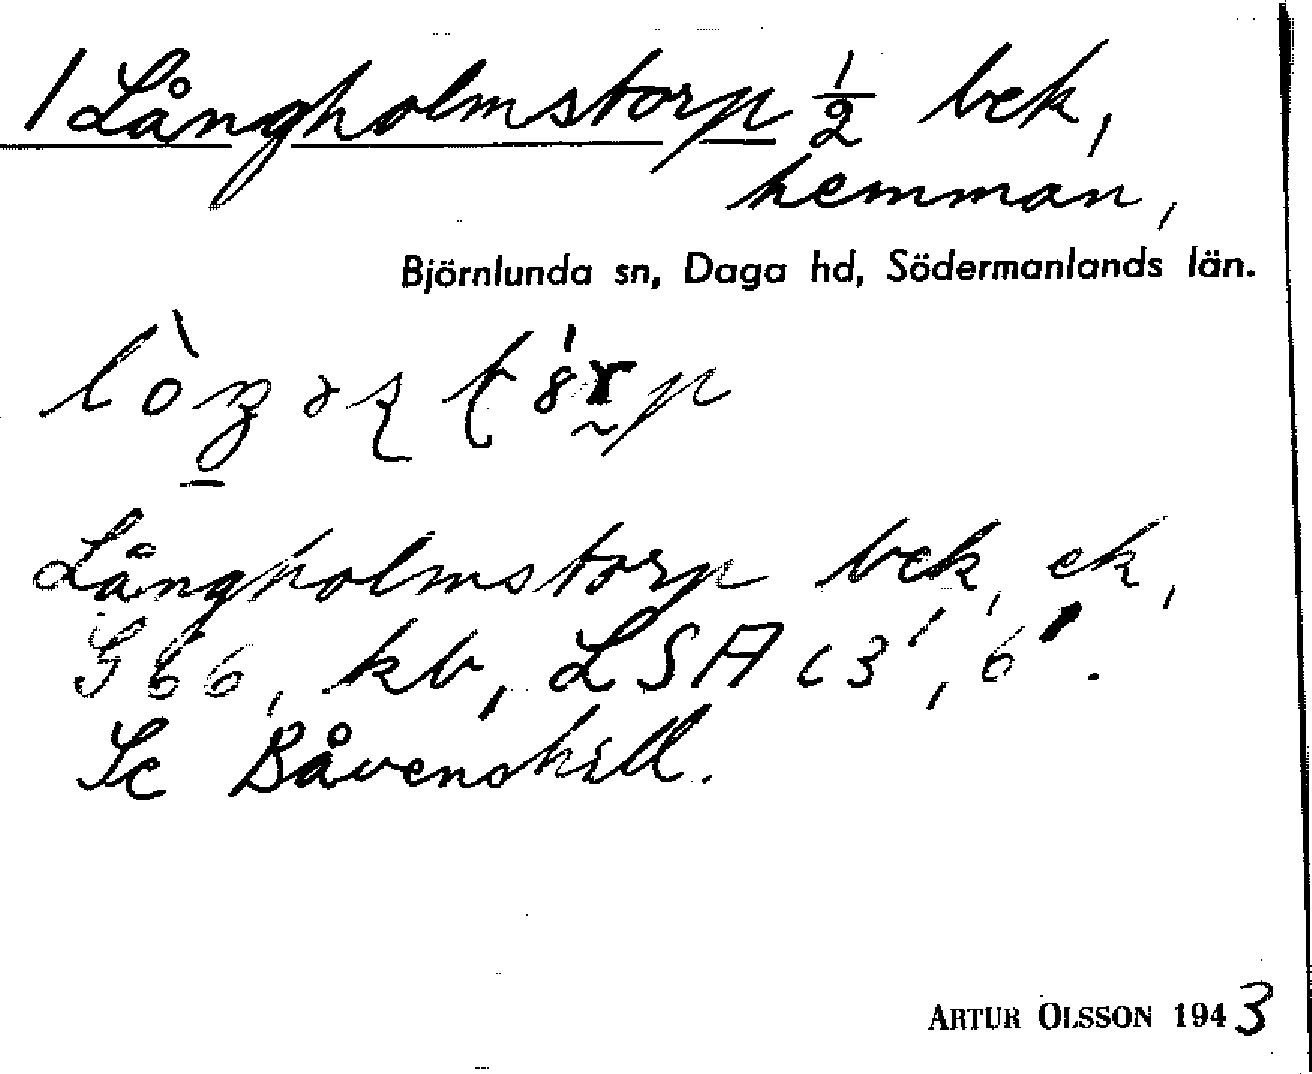 1 Långholmstorp ½ bek,
hemman,
Björnlunda sn, Daga hd, Södermanlands län.
Långholmstorp bek, ek,
G 66, kb, LSA c3', 6'.
Se Båvenshill.
ARTUR OLSSON 1943